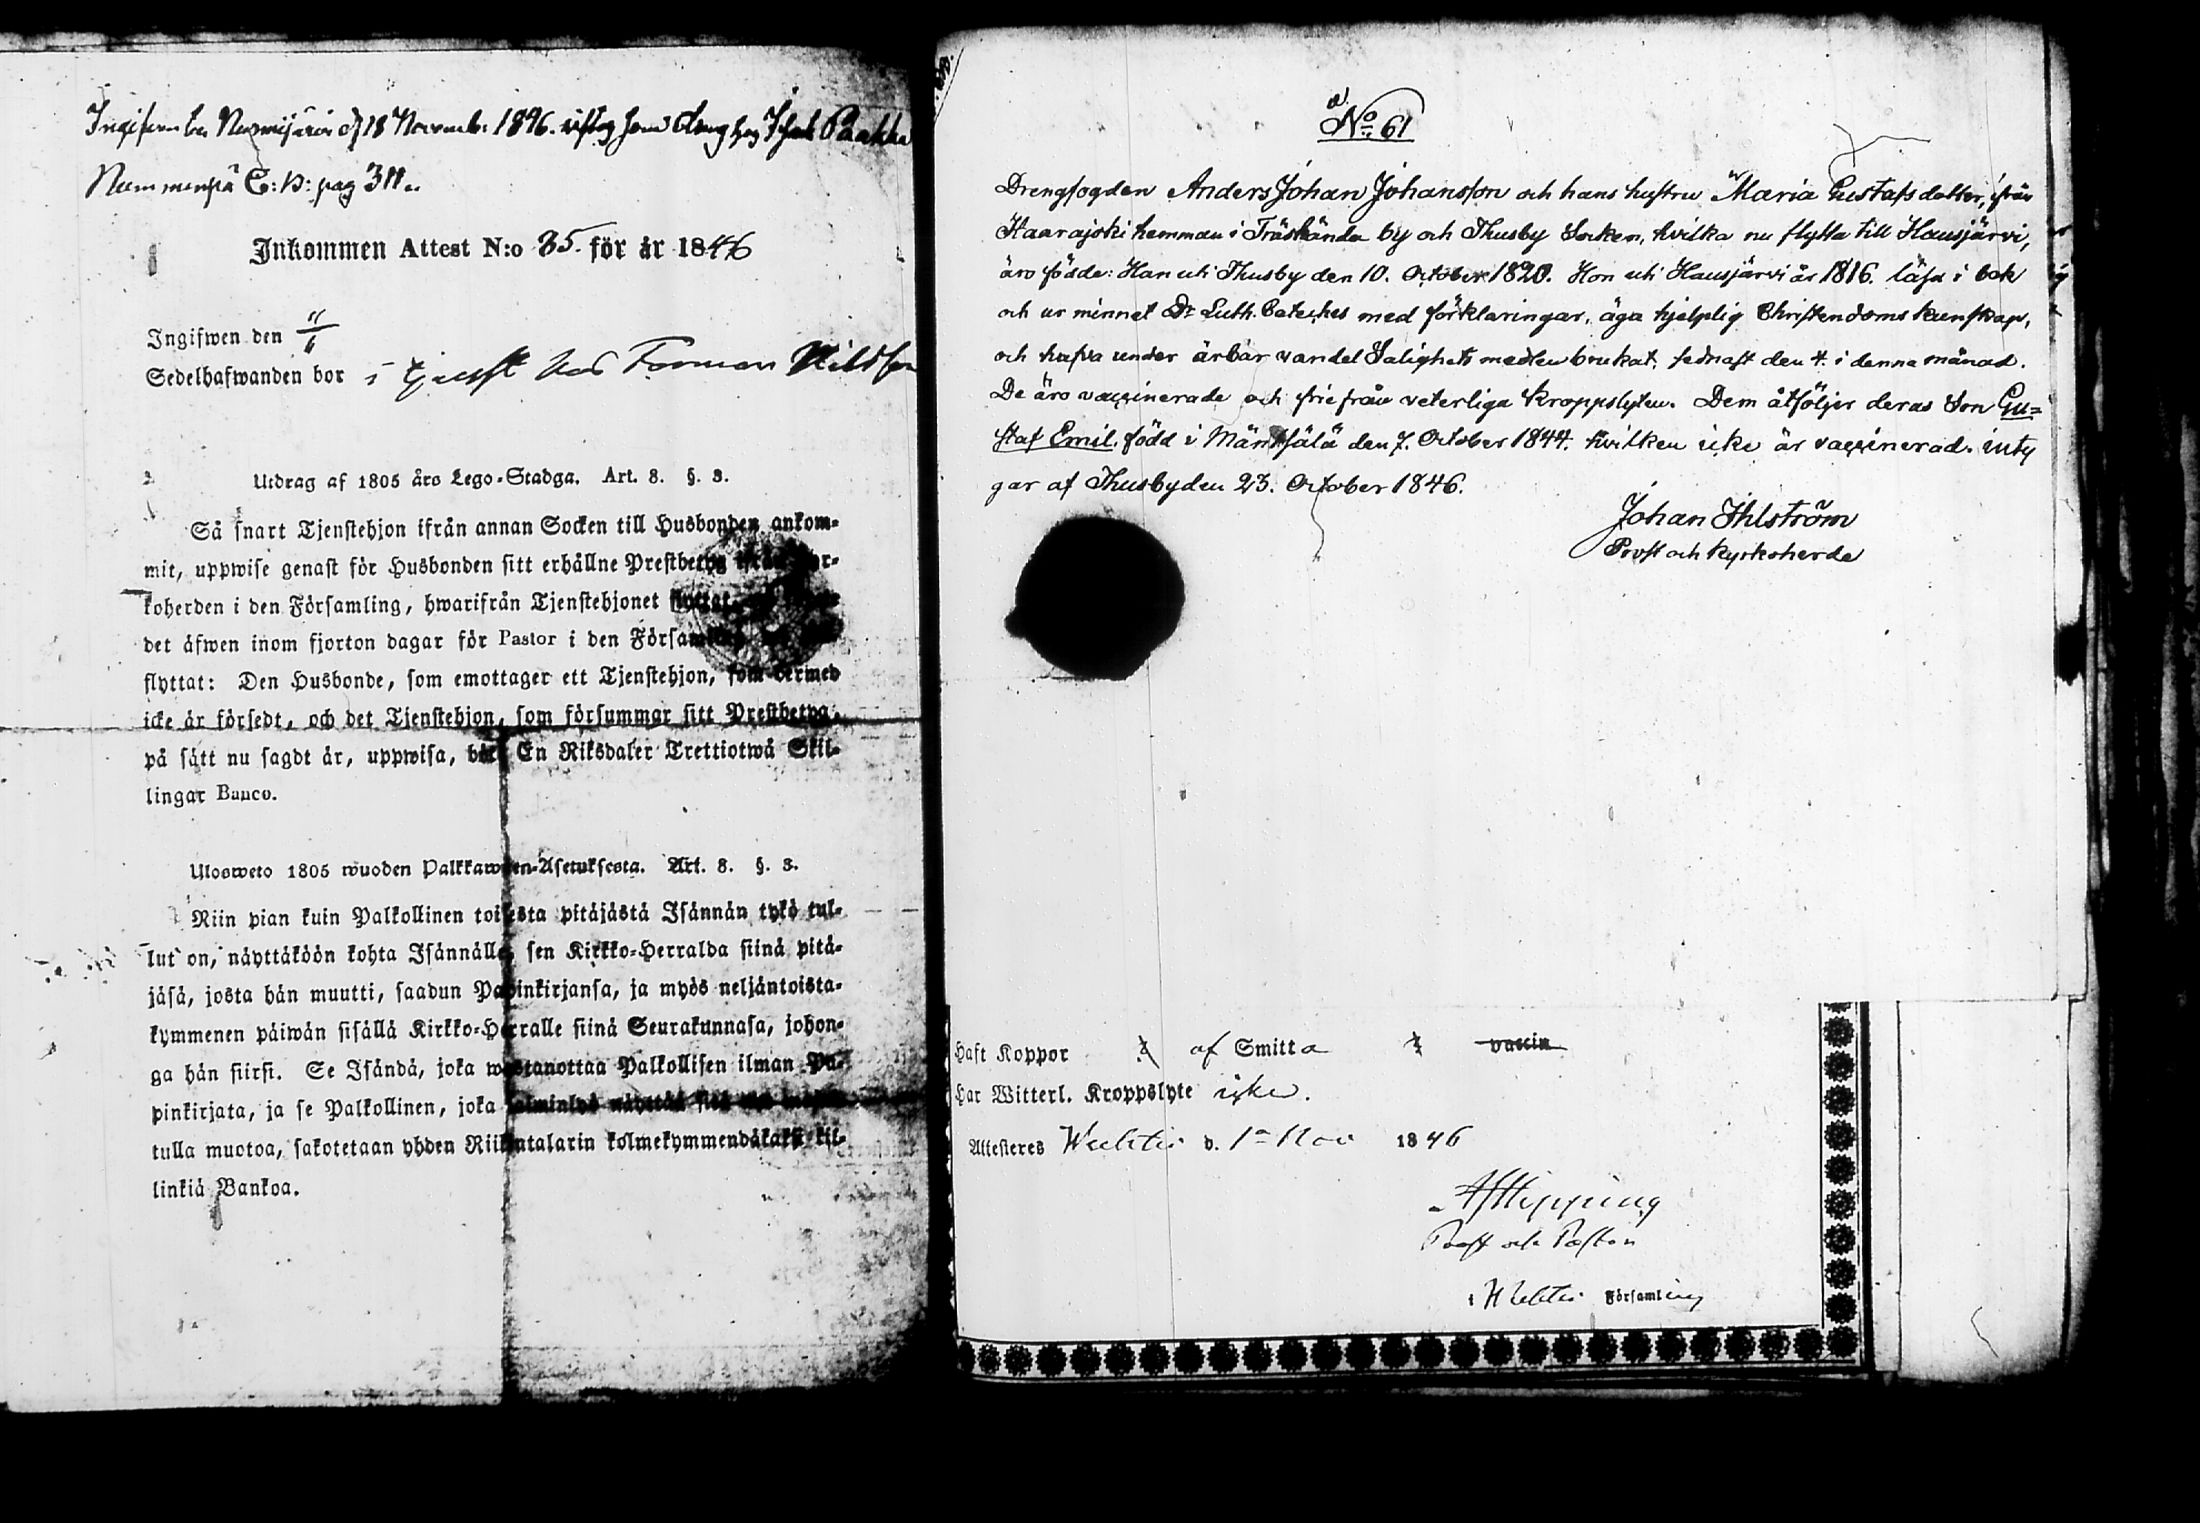 Nurmijärvi d 18 Novemb: 1846.
Nummenpä C:B: pag 311.
Inkommen Attest N:o 35. för år 1846
Ingifwen den 11/6
Sedelhafwanden bor i tjenst hos Forman
Utdrag af 1805 års Lego-Stadga. Art. 8. §. 3.
Så snart Tjenstehjon ifrån annan Socken till Husbonden ankom-
mit, uppwise genast för Husbonden sitt erhållne Prestbetyg ifrån Kyr-
koherden i den Församling, hwarifrån Tjenstehjonet flyttat,
det äfwen inom fjorton dagar för Pastor i den Församling
flyttat: Den Husbonde, som emottager ett Tjenstehjon, som dermed
icke är försedt, och det Tjenstehjon, som försummar sitt Prestbetyg,
på sätt nu sagdt är, uppwisa, böte En Riksdaler Trettiotwå Skil-
lingar Banco.
Ulosweto 1805 wuoden Palkkawäen-Asetuksesta. Art. 8. §. 3.
Niin pian kuin Palkollinen toisesta pitäjästä Isännän tykö tul-
lut on, näyttäköön kohta Isännälle, sen Kirkko-Herralda siinä pitä-
jäsä, josta hän muutti, saadun Papinkirjansa, ja myös neljäntoista-
kymmenen päiwän sisällä Kirkko-Herralle siinä Seurakunnasa, johon-
ga hän siirsi. Se Isändä, joka wastanottaa Palkollisen ilman Pa-
pinkirjata, ja se Palkollinen, joka laiminlyö näyttää sitä
tulla muotoa, sakotetaan yhden Riikintalarin kolmekymmendäkaksi kil-
linkiä Bankoa.
No 61
Drengfogden Anders Johan Johansson och hans hustru Maria Gustafsdotter, från
Haarajoki hemman i Träskända by och Thusby Socken, hvilka nu flytta till Hausjärvi,
äro födde: Han uti Thusby den 10. October 1820. Hon uti Hausjärvi år 1816. läsa i bok
och ur minnet Dr Luth. Cateches med förklaringar, äga hjelplig Christendoms kunskap,
och hafva under ärbar vandel Salighets medlen brukat, sednast den 4. i denna månad.
De äro vaccinerade och frie från veterliga kroppslyten. Dem åtföljer deras Son Gu=
staf Emil, född i Mäntsälä den 7. October 1844. hvilken icke är vaccinerad. inty
gar af Thusby den 23. October 1846.
Johan Ihlström
Prost och Kyrkoherde
Haft Koppor af Smitta vaccin
Har Witterl. Kroppslyte icke.
Attesteres Wichtis d. 1a Nov 1846
Prost och Pastor
i Wichtis Församling